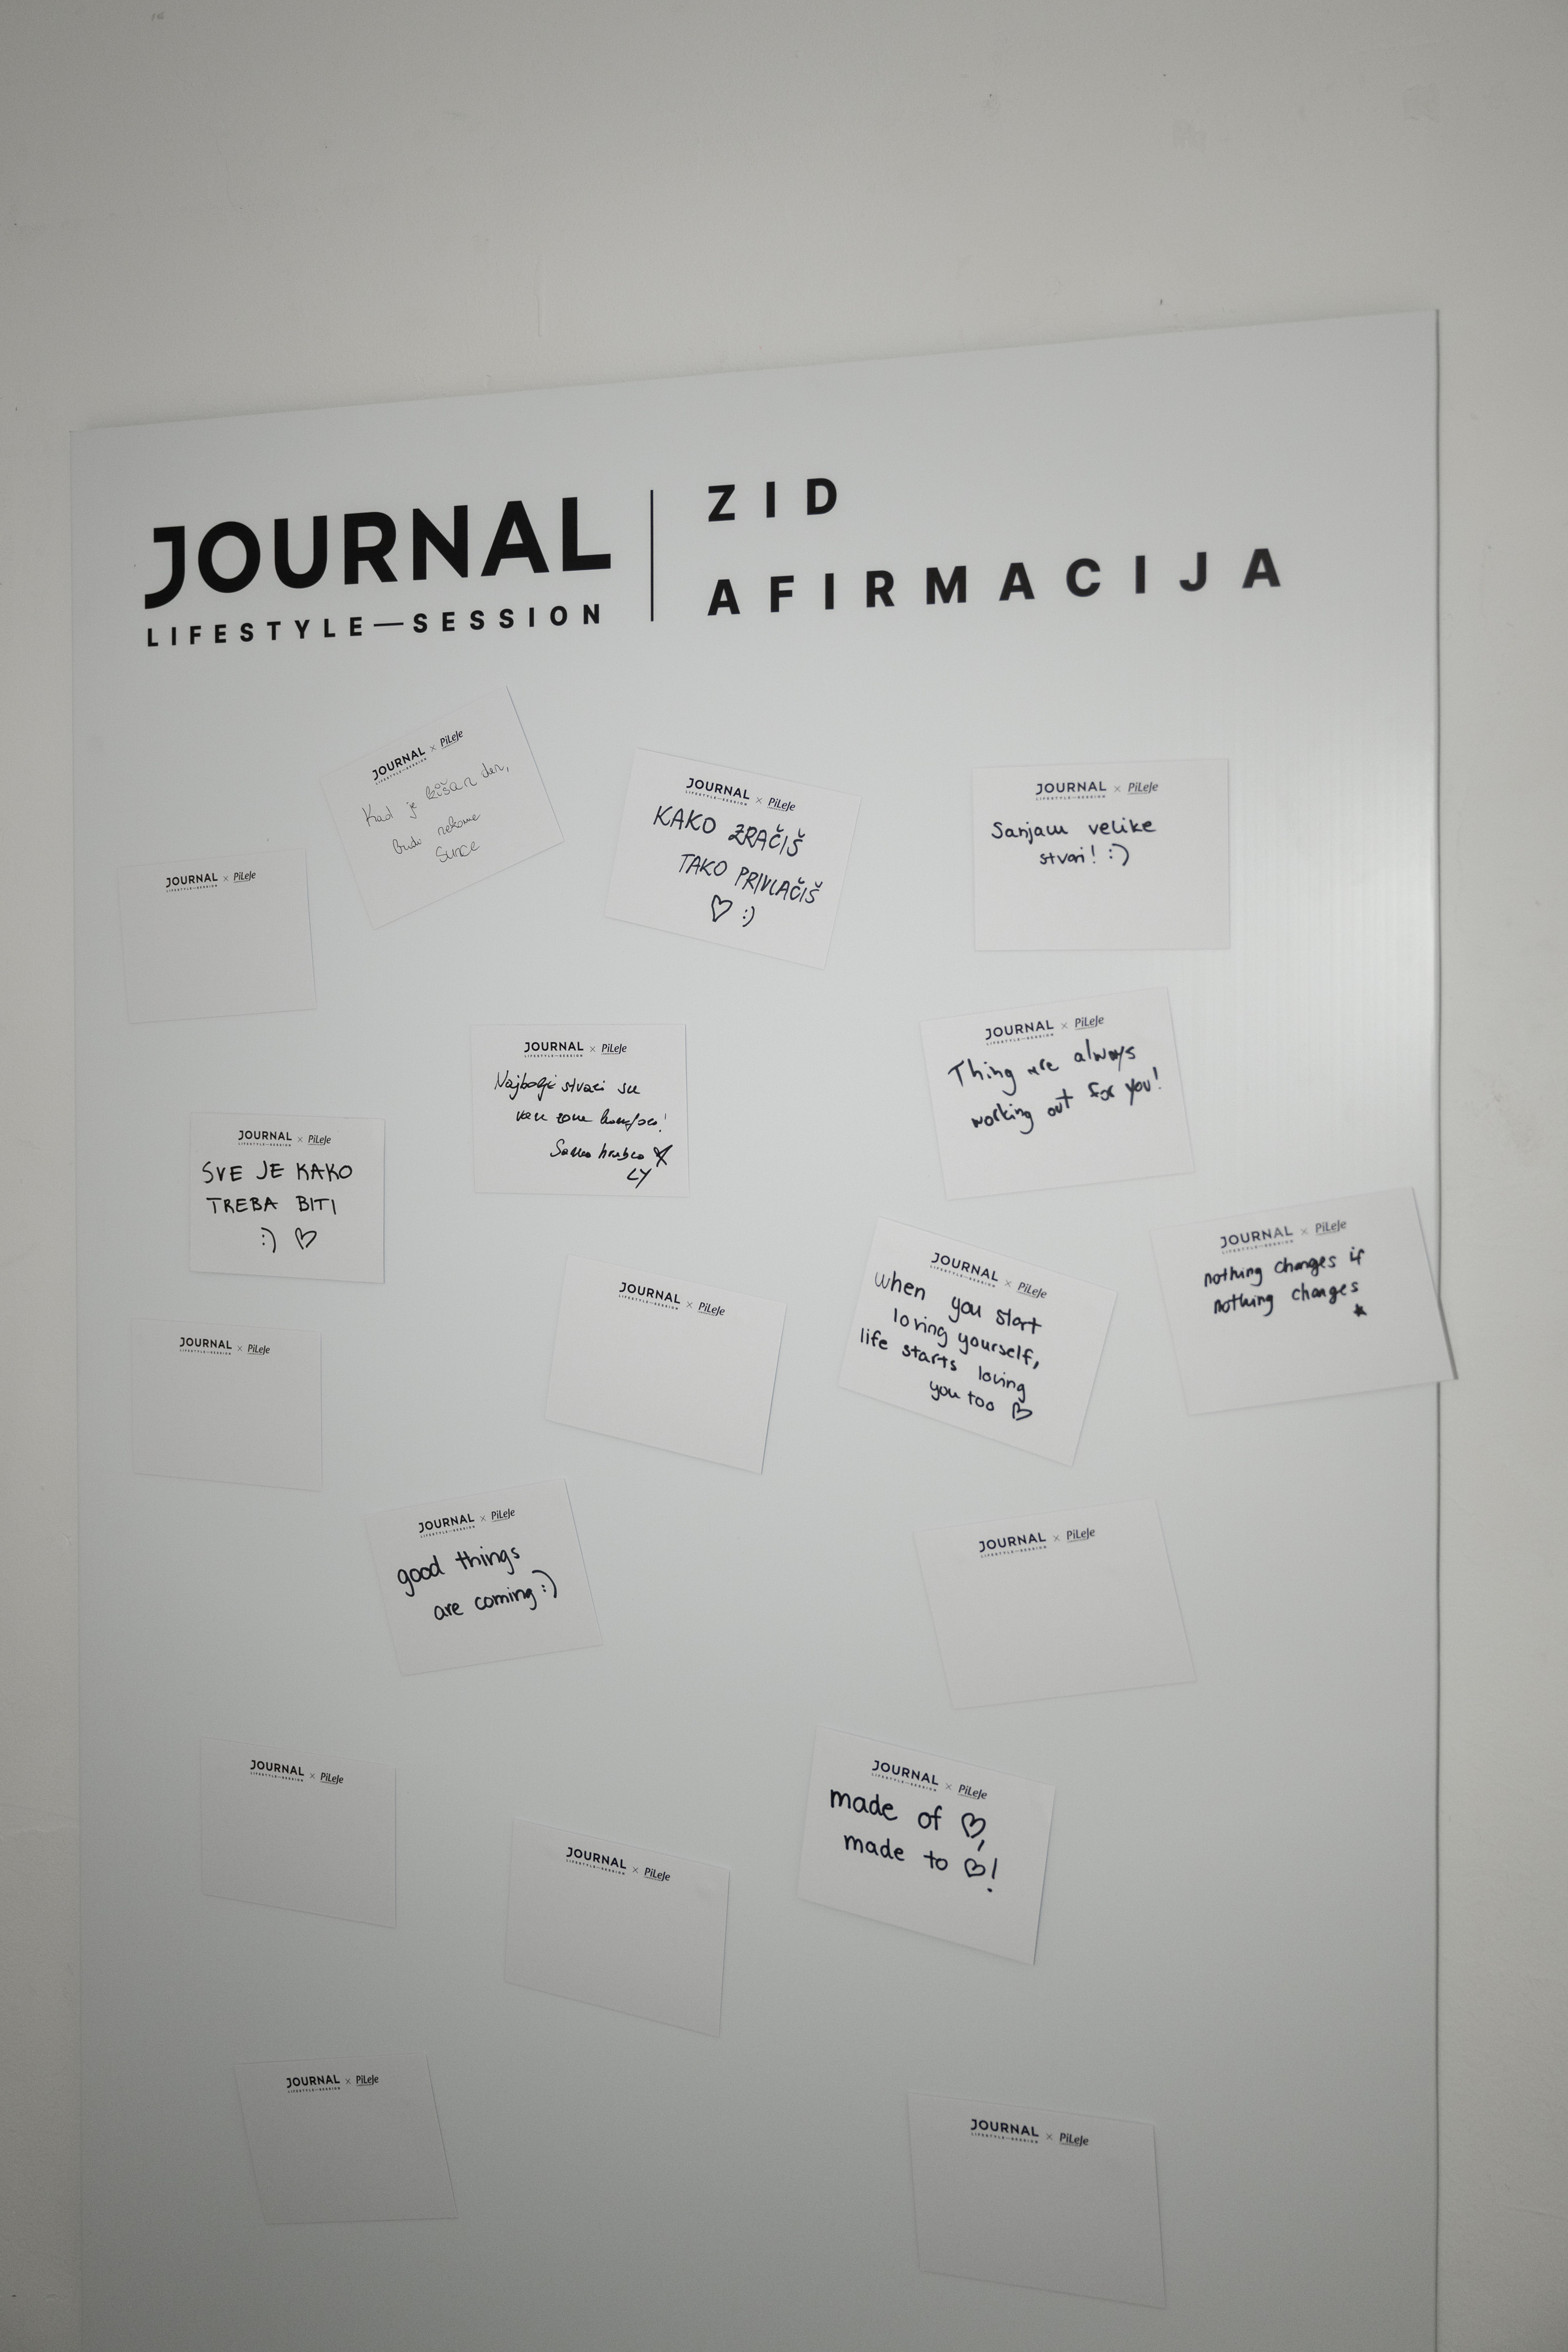 JOURNAL
LIFESTYLE—SESSION
ZID
AFIRMACIJA
JOURNAL × PiLeJe
LIFESTYLE—SESSION
Kad je kišan dan,
budi nekome
sunce
JOURNAL × PiLeJe
LIFESTYLE—SESSION
KAKO ZRAČIŠ
TAKO PRIVLAČIŠ
♡ :)
JOURNAL × PiLeJe
LIFESTYLE—SESSION
Sanjam velike
stvari! :)
JOURNAL × PiLeJe
LIFESTYLE—SESSION
JOURNAL × PiLeJe
LIFESTYLE—SESSION
Najbolje stvari su
van zone komfora!
Samo hrabro
LY
JOURNAL × PiLeJe
LIFESTYLE—SESSION
Thing are always
working out for you!
JOURNAL × PiLeJe
LIFESTYLE—SESSION
SVE JE KAKO
TREBA BITI
:) ♡
JOURNAL × PiLeJe
LIFESTYLE—SESSION
JOURNAL × PiLeJe
LIFESTYLE—SESSION
when you start
loving yourself,
life starts loving
you too ♡
JOURNAL × PiLeJe
LIFESTYLE—SESSION
nothing changes if
nothing changes
★
JOURNAL × PiLeJe
LIFESTYLE—SESSION
JOURNAL × PiLeJe
LIFESTYLE—SESSION
good things
are coming :)
JOURNAL × PiLeJe
LIFESTYLE—SESSION
JOURNAL × PiLeJe
LIFESTYLE—SESSION
JOURNAL × PiLeJe
LIFESTYLE—SESSION
made of ♡,
made to ♡!
JOURNAL × PiLeJe
LIFESTYLE—SESSION
JOURNAL × PiLeJe
LIFESTYLE—SESSION
JOURNAL × PiLeJe
LIFESTYLE—SESSION